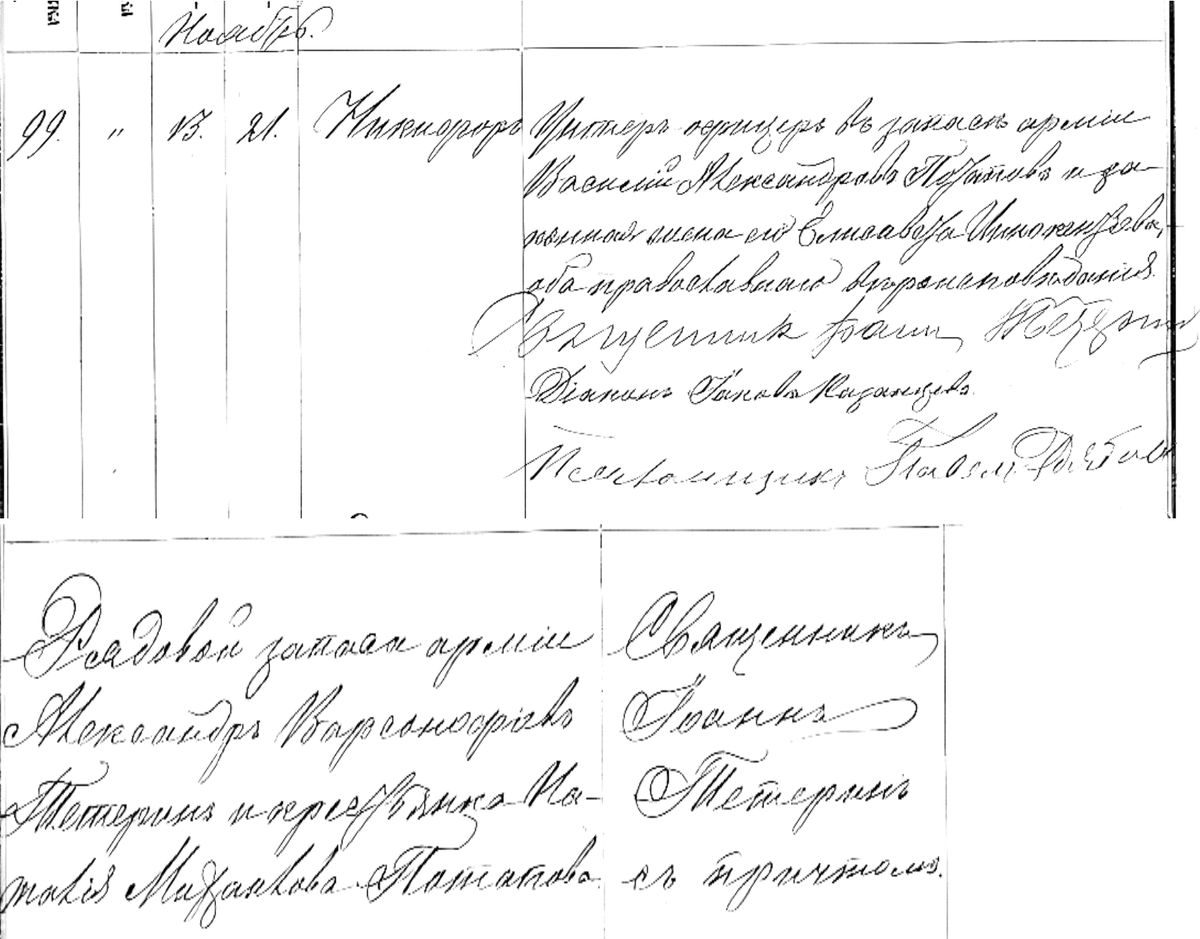 Ноябрь.
99. " 13. 21. Никифоръ Унтеръ офицеръ въ запасѣ арміи
Василій Александровъ Потаповъ и за-
конная жена его Елисавета Иннокентьева,
оба православнаго вѣроисповѣданія.
Священник Іоанн Тетерин
Діаконъ Іаковъ Казанцевъ
Псаломщикъ Павелъ
Рядовой запаса арміи
Александръ Варсонофіевъ
Тетеринъ и крестьянка На-
талія Михайлова Потапова.
Священникъ
Іоаннъ
Тетеринъ
съ причтомъ.